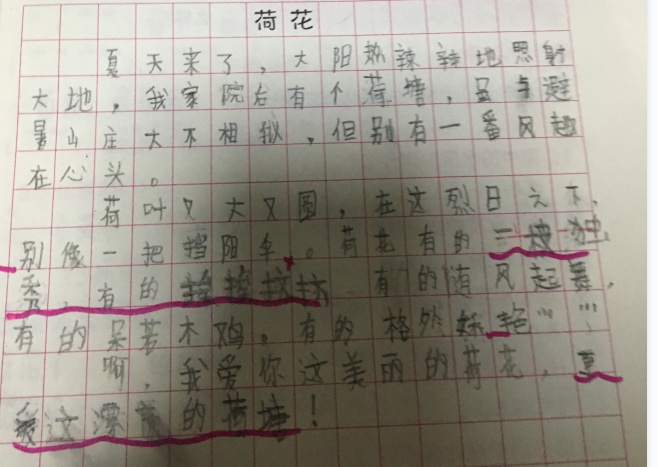 荷花
夏天来了，大阳热辣辣地射
大地，我家院后有个荷塘，虽与避
暑山庄大不相拟，但别有一番风趣
在心头。
荷叶又大又圆，在这烈日之下，
别像一把挡阳伞。荷花有的一枝独
秀，有的 有的迎风起舞，
有的呆若木鸡，有的格外妖艳……
啊，我爱你这美丽的荷花，更
爱这漂亮的荷塘！